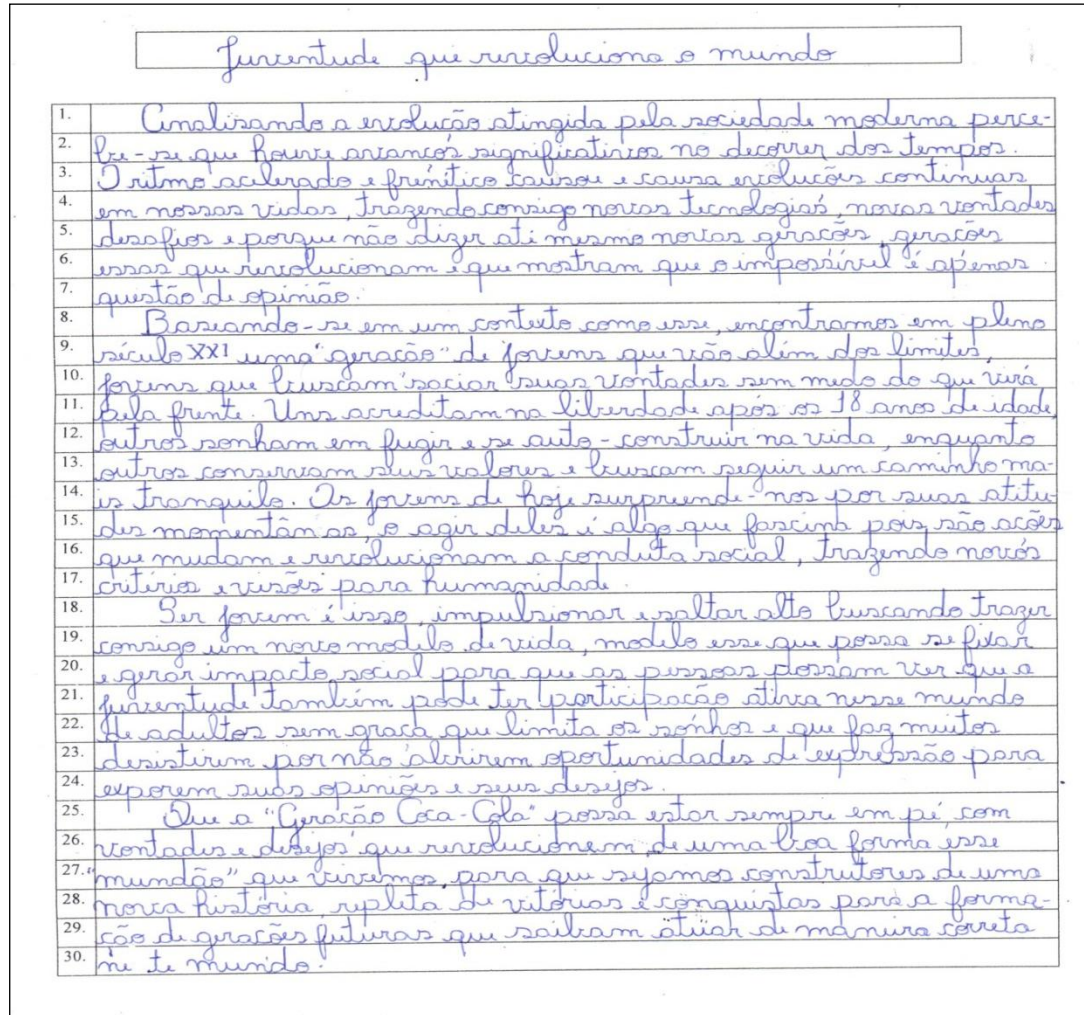 Juventude que revoluciona o mundo
1. Analisando a evolução atingida pela sociedade moderna perce-
2. be-se que houve avanços significativos no decorrer dos tempos.
3. O ritmo acelerado e frenético causou e causa evoluções contínuas
4. em nossas vidas, trazendo consigo novas tecnologias, novas vontades
5. desafios e porque não dizer até mesmo novas gerações, gerações
6. essas que revolucionam e que mostram que o impossível é apenas
7. questão de opinião.
8. Baseando-se em um contexto como esse, encontramos em pleno
9. século XXI uma "geração" de jovens que vão além dos limites,
10. jovens que buscam saciar suas vontades sem medo do que virá
11. pela frente. Uns acreditam na liberdade após os 18 anos de idade,
12. outros sonham em fugir e se auto-construir na vida, enquanto
13. outros conservam seus valores e buscam seguir um caminho ma-
14. is tranquilo. Os jovens de hoje surpreende-nos por suas atitu-
15. des momentâneas, o agir deles é algo que fascina pois são ações
16. que mudam e revolucionam a conduta social, trazendo novos
17. critérios e visões para humanidade.
18. Ser jovem é isso, impulsionar e saltar alto buscando trazer
19. consigo um novo modelo de vida, modelo esse que possa se fixar
20. e gerar impacto social para que as pessoas possam ver que a
21. juventude também pode ter participação ativa nesse mundo
22. de adultos sem graça que limita os sonhos e que faz muitos
23. desistirem por não abrirem oportunidades de expressão para
24. exporem suas opiniões e seus desejos.
25. Que a "Geração Coca-Cola" possa estar sempre em pé, com
26. vontades e desejos que revolucionem de uma boa forma esse
27. "mundão" que vivemos, para que sejamos construtores de uma
28. nova história, repleta de vitórias e conquistas para a forma-
29. ção de gerações futuras que saibam atuar de maneira correta
30. ne te mundo.